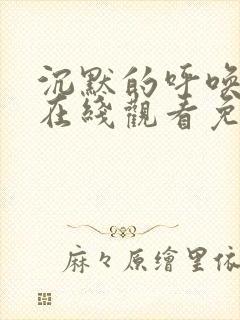 沉默的呼喚
在綫觀看免
麻々原繪里依